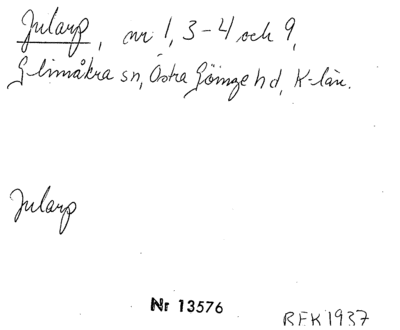 Jularp, nr 1, 3-4 och 9,
Glimåkra sn, Östra Göinge hd, K-län.
Jularp
Nr 13576
REK 1937